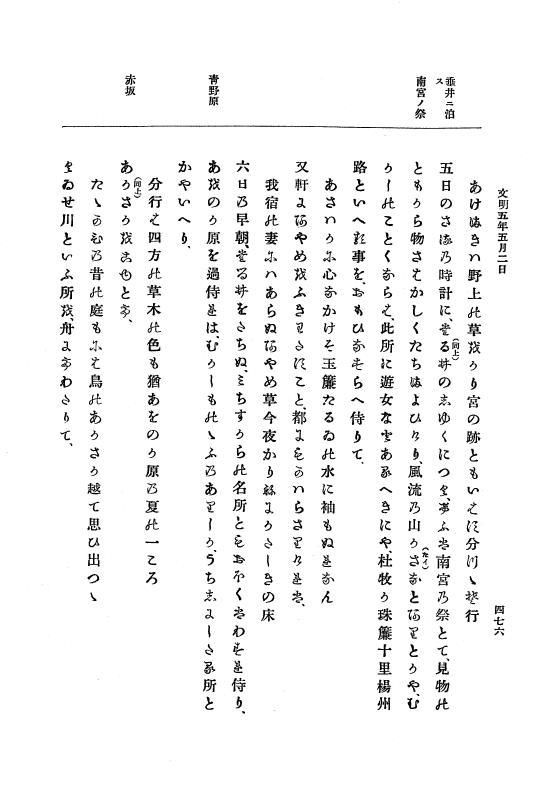 文明五年五月二日
四七六
垂井ニ泊ス
南宮ノ祭
青野原
赤坂
あけぬれハ野上の草かり宮の跡ともいはす分つゝそ行
五日のさるの時計に、たる井のしゆくにつく、けふは南宮の祭とて、見物の
(同上)
ともから物さわかしくたちぬよひけり、風流の山かさなとありとかや、む
(たイ)
かしのことくならは、此所に遊女なとあるへきにや、杜牧か珠簾十里楊州
路といへる事を、おもひなそらへ侍りて、
あさハかに心なかけそ玉簾たるゐの水に袖もぬれなん
又軒にあやめをふきわたすこと、都にもかハらさりけれは、
我宿の妻にハあらぬあやめ草今夜かりねにかたしきの床
六日の早朝、たる井をたちぬ、みちすからの名所ともおほくはわすれ侍り、
あをのか原を過侍れは、むかしものゝふのありしか、うちしにしたる所と
かやいへり、
分行は四方の草木の色も猶あをのか原の夏の一ころ
(同上)
あかさかをとて、
たゝかひの昔の庭もには鳥のあかさか越て思ひ出つゝ
くゐせ川といふ所を、舟にてわたりて、